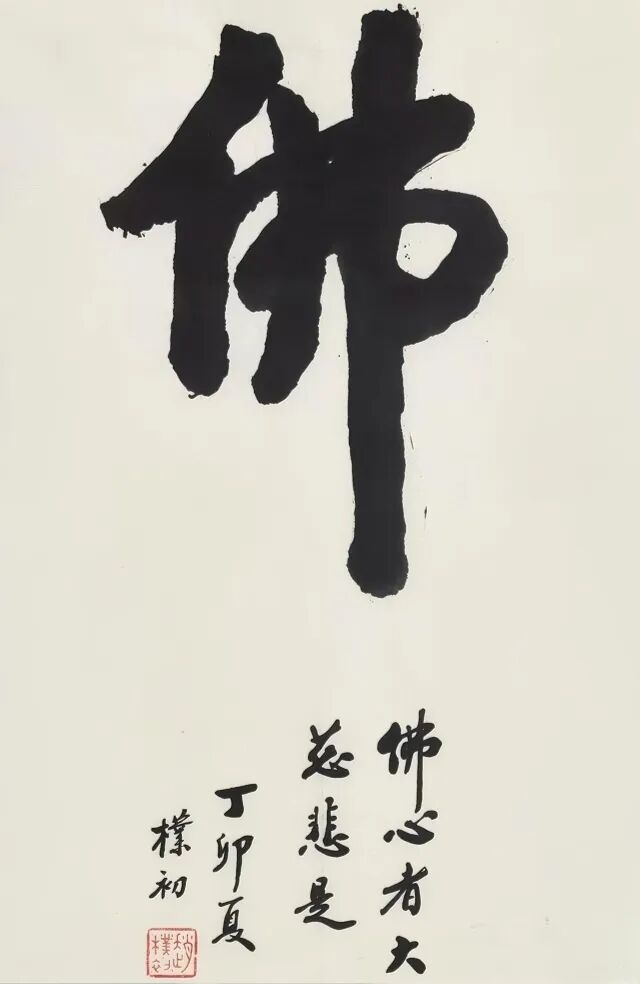 佛
佛心者大
慈悲是
丁卯夏
樸初
趙樸初